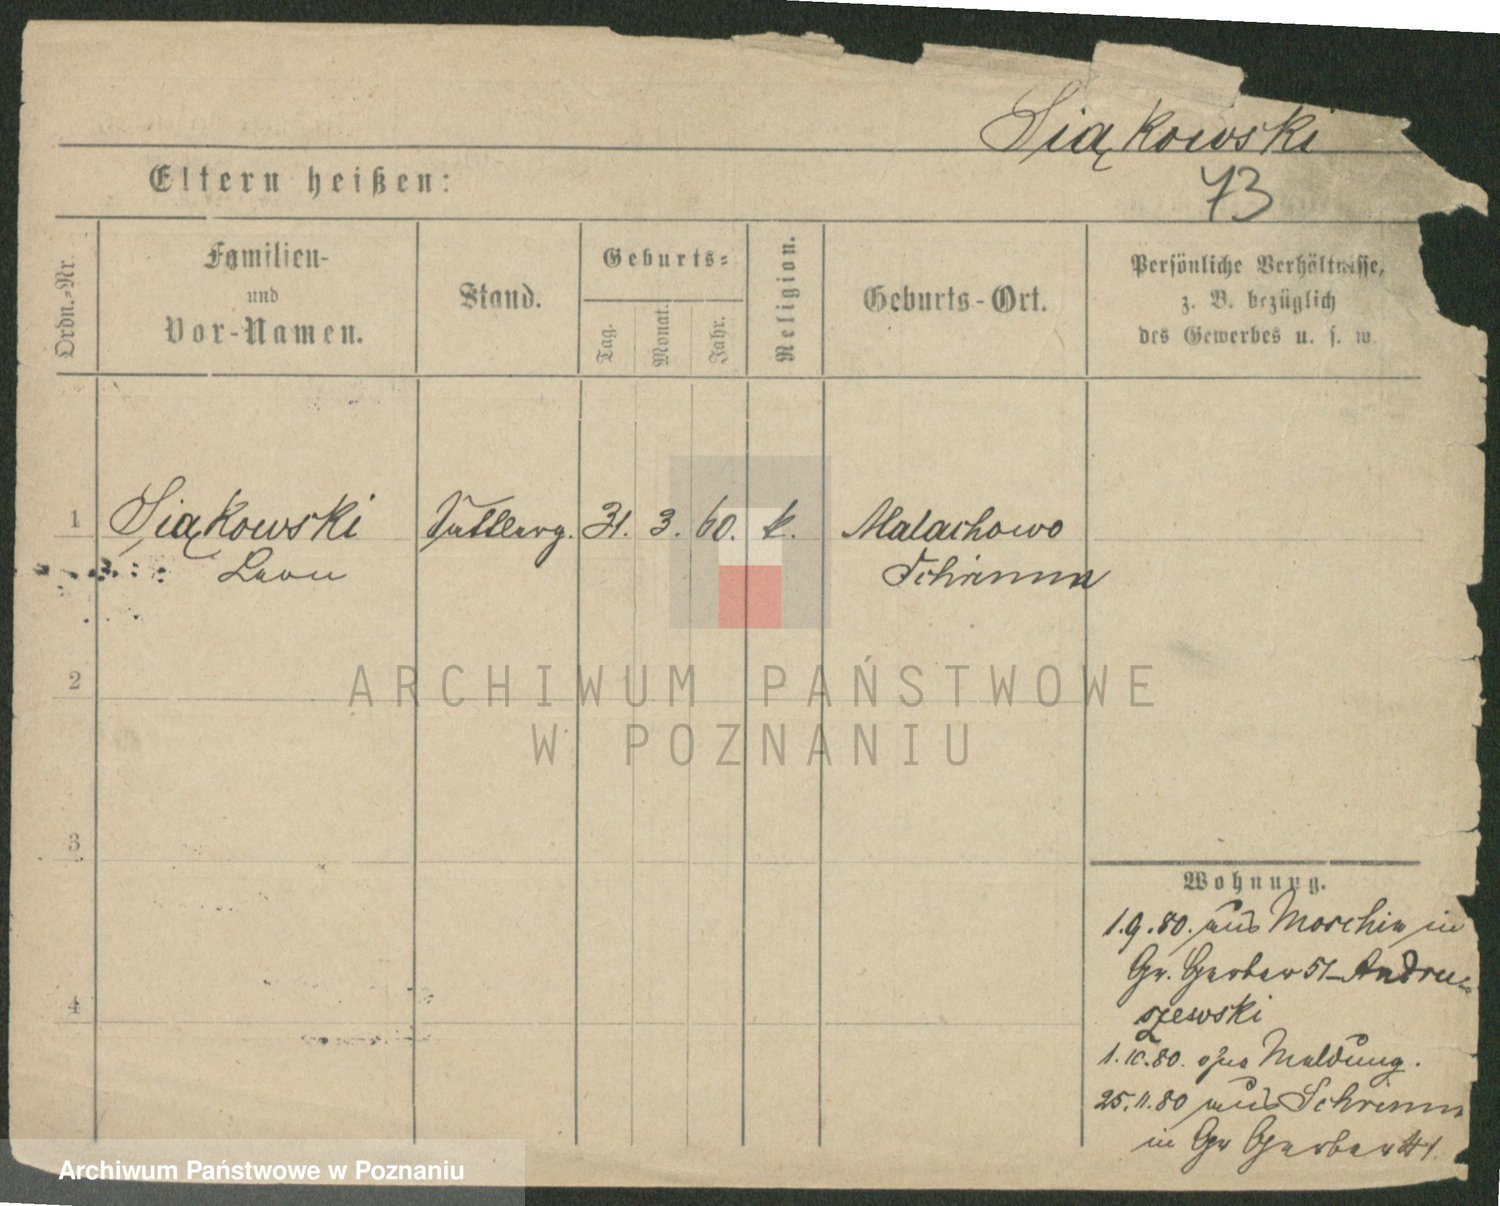 Siąkowski
73
Eltern heißen:
Ordn.-Nr.
Familien-
und
Vor-Namen.
Stand.
Geburts-
Tag.
Monat.
Jahr.
Religion.
Geburts-Ort.
Persönliche Verhältnisse,
z. B. bezüglich
des Gewerbes u. s. w.
1
Siąkowski
Leon
Sattlerg.
31. 3. 60. k.
Malachowo
Schrimm
2
ARCHIWUM PAŃSTWOWE
W POZNANIU
3
4
Wohnung.
1.9.80. aus Moschin in
Gr. Gerber 51 Andru-
szewski
1.10.80. ohne Meldung.
25.11.80 aus Schrimm
in Gr Gerber 41.
Archiwum Państwowe w Poznaniu